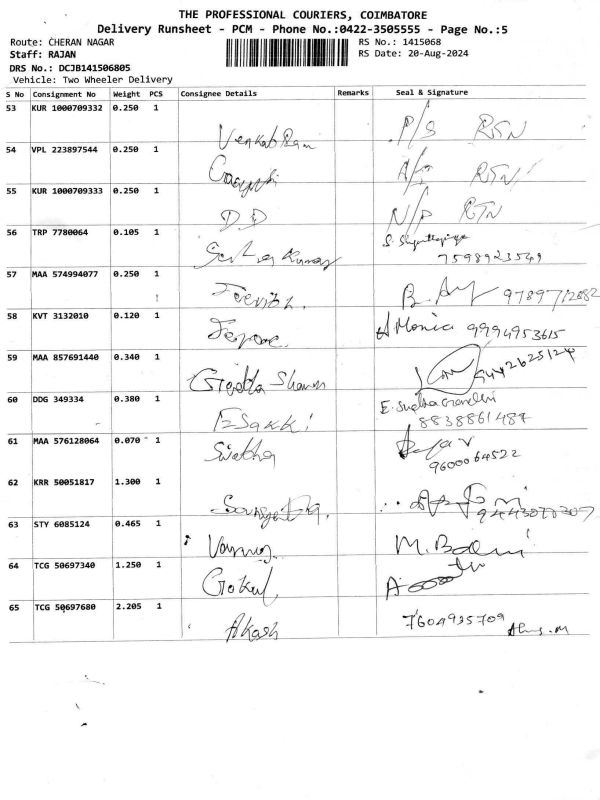 THE PROFESSIONAL COURIERS, COIMBATORE
Delivery Runsheet - PCM - Phone No.:0422-3505555 - Page No.:5
Route: CHERAN NAGAR RS No.: 1415068
Staff: RAJAN RS Date: 20-Aug-2024
DRS No.: DCJB141506805
Vehicle: Two Wheeler Delivery
S No Consignment No Weight PCS Consignee Details Remarks Seal & Signature
53 KUR 1000709332 0.250 1
Venkat Ram P/S RTN
54 VPL 223897544 0.250 1
RTN
55 KUR 1000709333 0.250 1
DD N/P RTN
56 TRP 7780064 0.105 1
Kumar 7598923549
57 MAA 574994077 0.250 1
58 KVT 3132010 0.120 1
A Monica 9994953615
59 MAA 857691440 0.340 1
9442625124
60 DDG 349334 0.380 1
ESakki 8838861487
61 MAA 576128064 0.070 1
9600064522
62 KRR 50051817 1.300 1
63 STY 6085124 0.465 1
64 TCG 50697340 1.250 1
Gokul
65 TCG 50697680 2.205 1
Akash 7604935709